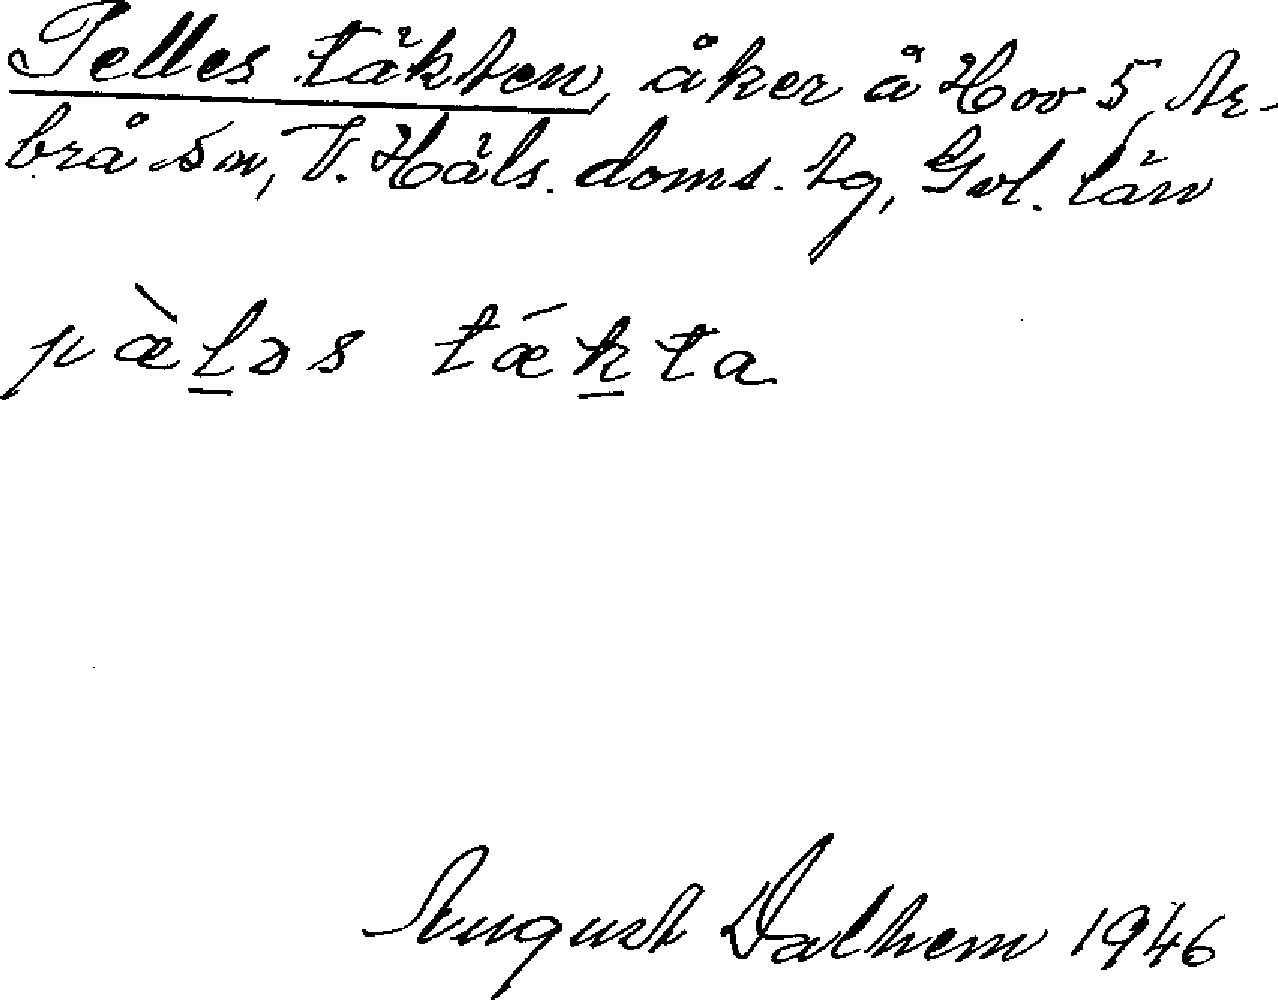 Pelles täkten, åker å Hov 5, Ar-
brå sn, V. Häls. doms. tg, Gvl. län
pæ̀l̲əs tǽk̲ta
August Dalhem 1946